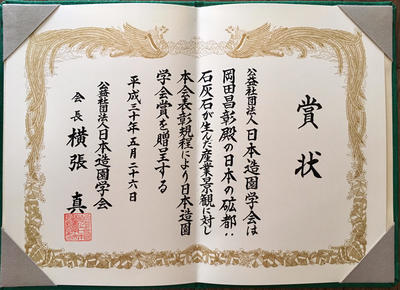 賞状
公益社団法人日本造園学会は
岡田昌彰殿の日本の砿都:
石灰石が生んだ産業景観に対し
本会表彰規程により日本造園
学会賞を贈呈する
平成三十年五月二十六日
公益社団法人日本造園学会
会長 横張 真